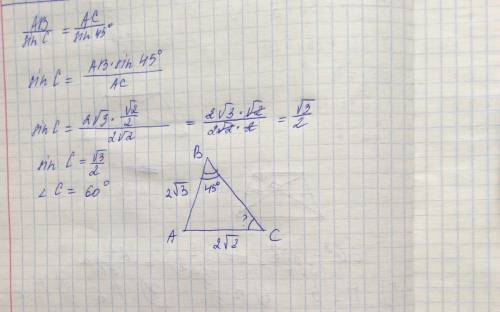 AB/sin C = AC/sin 45°
sin C = AB · sin 45°/AC
sin C = 2√3 · √2/2 / 2√2 = 2√3 · √2 / 2√2 · 2 = √3/2
sin C = √3/2
∠C = 60°
B
2√3
45°
?
A
C
2√2